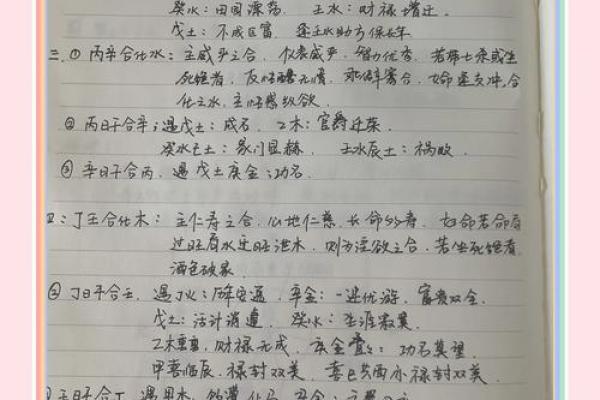 癸水：田园漂荡. 壬水：财禄增迁.
戊土：不成巨富. 逢壬水助方保长年
三.① 丙辛合化水：主威严之合. 仪表威严. 智力优秀. 若带七杀或坐
死绝者, 反好无情. 乖僻寡合. 女命逢支冲.合
化之水, 主好惑纵欲.
② 丙日干合辛；遇戊土：成名. 乙木：官爵迁荣.
癸水己土：家门显赫. 壬水辰土：祸败.
③ 辛日干合丙. 遇戊土庚金：功名.
四：丁壬合化木： 主仁寿之合. 心地仁慈. 长命多寿. 女命若命局
过旺有水过旺泄木. 则为淫欲之合. 若坐死绝者.
酒色破家.
② 丁日干合壬. 遇丁火：历年安通. 辛金：一进优游. 富贵双全.
戊土：活计消遣. 癸水：生涯寂莫.
乙木重重. 财禄无成. 庚金叠叠：功名莫望.
甲喜临辰. 禄封双美. 喜己共西亦禄封双美.
壬日干合丁. 遇甲木. 化马.